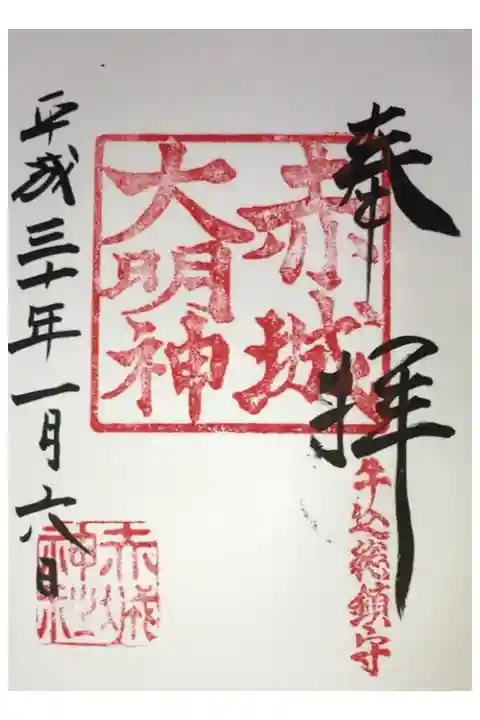 奉拝
牛込總鎮守
赤城
大明神
赤城
神社
平成三十年一月六日